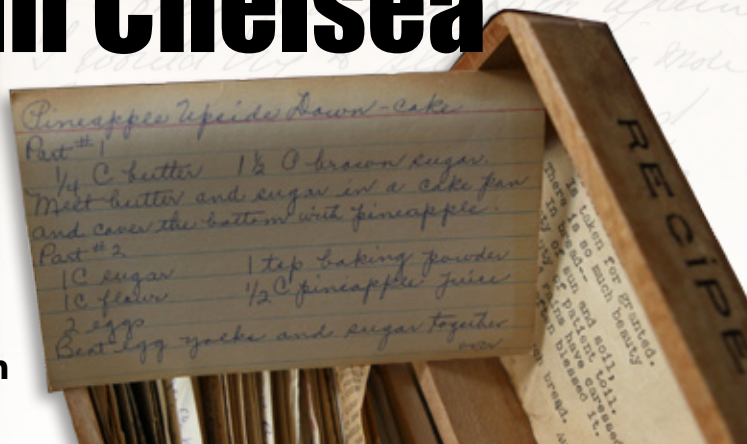 in Chelsea
Pineapple Upside Down-cake
Part #1
1/4 C butter 1 1/2 C brown sugar
Melt butter and sugar in a cake pan
and cover the bottom with pineapple.
Part #2
1C sugar 1 tsp baking powder
1C flour 1/2 C pineapple juice
2 eggs
Beat egg yolks and sugar together
over
RECiPE
is taken for granted.
There is so much beauty
in bread--
of sun and soil,
of patient toil.
have caressed
often blessed it.
bread.
n